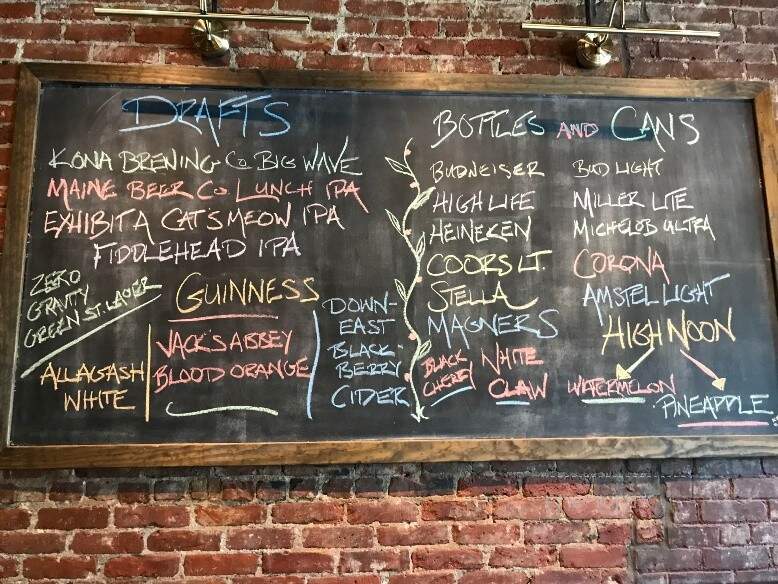 DRAFTS
KONA BREWING Co BIG WAVE
MAINE BEER Co LUNCH IPA
EXHIBIT A CAT'S MEOW IPA
FIDDLEHEAD IPA
ZERO
GRAVITY
GREEN ST. LAGER
GUINNESS
ALLAGASH
WHITE
JACK'S ABBEY
BLOOD ORANGE
DOWN-
EAST
BLACK-
BERRY
CIDER
BOTTLES AND CANS
BUDWEISER
HIGH LIFE
HEINEKEN
COORS LT.
STELLA
MAGNERS
BLACK
CHERRY
WHITE
CLAW
BUD LIGHT
MILLER LITE
MICHELOB ULTRA
CORONA
AMSTEL LIGHT
HIGH NOON
WATERMELON
PINEAPPLE